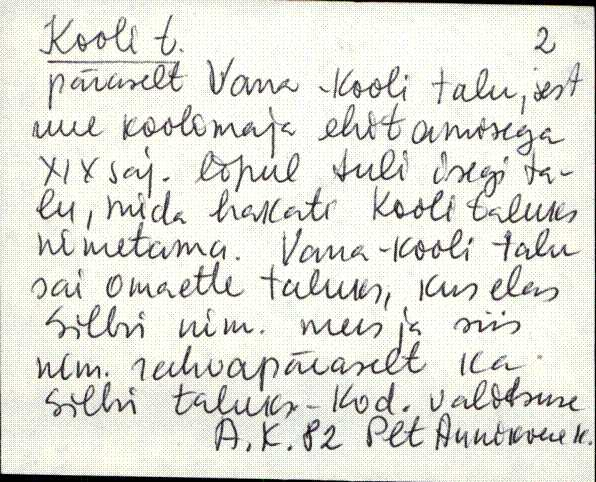 Kooli t. 2
päraselt Vana-Kooli talu, sest
uue koolimaja ehitamisega
XIX saj. lõpul tuli isegi ta-
lu, mida hakati Kooli taluks
nimetama. Vana-Kooli talu
sai omaette taluks, kus elas
Silbri nim. mees ja siis
nim. rahvapäraselt ka
Silbri taluks - Kod. valitsuse
A. K. 82 Plt